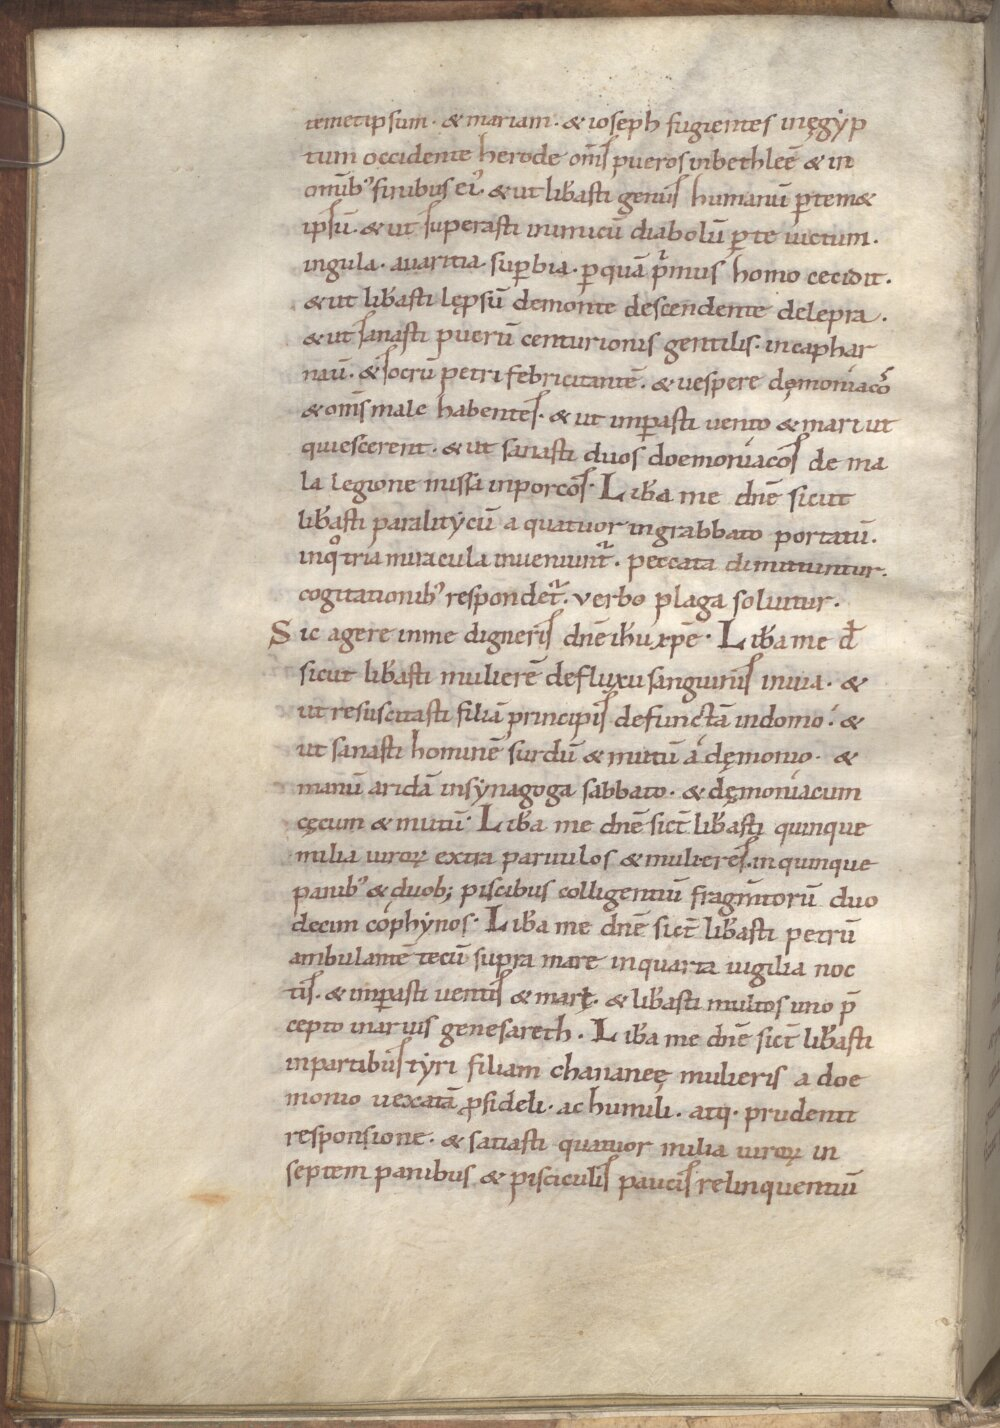 temetipsum · & mariam · & ioseph fugientes inęgẏp
tum occidente herode om̅s pueros inbethlee̅ & in
omib᾽ finibus ei᾽ · & ut lib̅asti genus humanu̅ p̱ tem&
ipsu̅ · & ut superasti inimicu̅ diabolu̅ p̱ te uictum ·
ingula · auaritia · sup̱bia · p̱ qua̅ p̅mus homo cecidit ·
& ut lib̅asti lęp̱su̅ demonte descendente delepra ·
& ut sanasti pueru̅ centurionis gentilis · incaphar
nau̅ · & socru̅ petri febricitante̅ · & uespere dęmoniaco̅
& om̅s male habentes · & ut imp̱asti uento & mari ut
quiescerent · & ut sanasti duos doemoniacos de ma
la legione missa inporcos · Lib̅a me dn̅e sicut
lib̅asti paralitẏcu̅ a quatuor ingrabbato portatu̅ ·
inq̊ tria miracula inueniunt᷑ · peccata dimittuntur ·
cogitationib᾽ respondet᷑ · verbo plaga soluitur ·
Sic agere inme digneris dn̅e ih̅u xp̅e · Lib̅a me d̅s
sicut lib̅asti muliere̅ defluxu sanguinis inuia · &
ut resuscitasti filia̅ principis defuncta̅ indomo · &
ut sanasti homine̅ surdu̅ & mutu̅ a dęmonio · &
manu̅ arida̅ insẏnagoga sabbato · & dęmoniacum
cęcum & mutu̅ · Lib̅a me dn̅e sict̅ lib̅asti quinque
milia uiroꝝ extra paruulos & mulieres · inquinque
panib᾽ & duob; piscibus colligentiu̅ fragm̅toru̅ duo
decim cophẏnos · Lib̅a me dn̅e sict̅ lib̅asti petru̅
ambulante̅ tecu̅ supra mare inquarta uigilia noc
tis · & imp̱asti uentis & marę · & lib̅asti multos uno p̅
cepto inaruis genesareth · Lib̅a me dn̅e sict̅ lib̅asti
inpartibus tẏri filiam chananeę mulieris a doe
monio uexata̅ ꝓ fideli · ac humili · atq · prudenti
responsione · & satiasti quatuor milia uiroꝝ in
septem panibus & pisciculis paucis relinquentiu̅